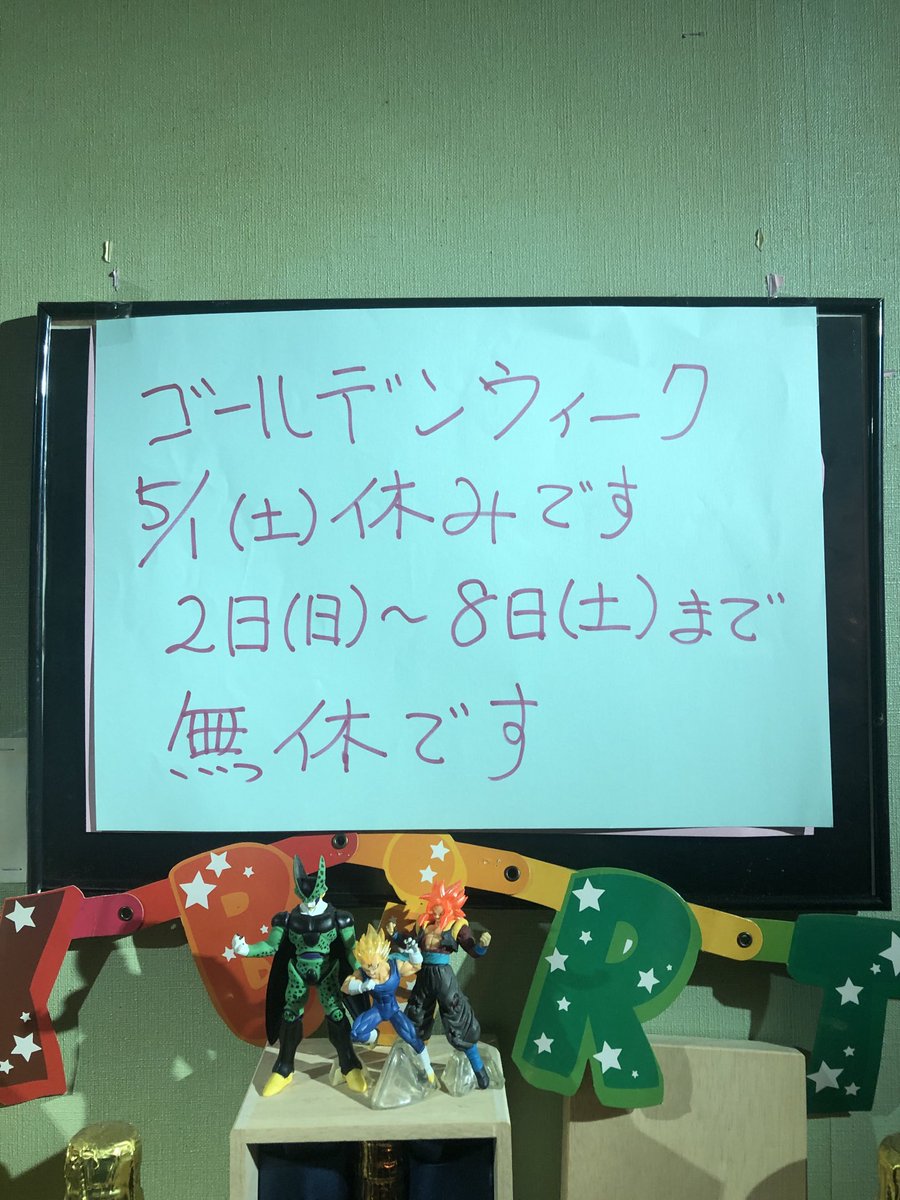 ゴールデンウィーク
5/1(土)休みです
2日(日)～8日(土)まで
無休です
Y B I R T